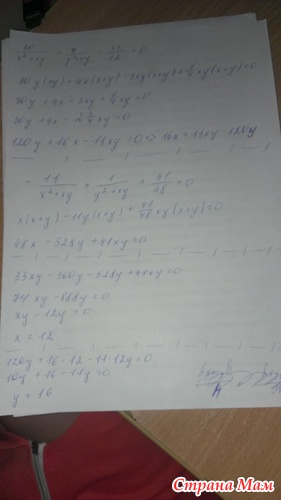 30/(x²+xy) + 4/(y²+xy) - 33/12 = 0
30y(x+y) + 4x(x+y) - 3xy(x+y) + 1/4 xy(x+y) = 0
30y + 4x - 3xy + 1/4 xy = 0
30y + 4x - 2 3/4 xy = 0
120y + 16x - 11xy = 0 16x = 11xy - 120y
- 11/(x²+xy) + 1/(y²+xy) + 41/48 = 0
x(x+y) - 11y(x+y) + 41/48 xy(x+y) = 0
48x - 528y + 41xy = 0
33xy - 360y - 528y + 41xy = 0
74xy - 888y = 0
xy - 12y = 0
x = 12
120y + 16·12 - 11·12y = 0
10y + 16 - 11y = 0
y = 16
Страна Мам